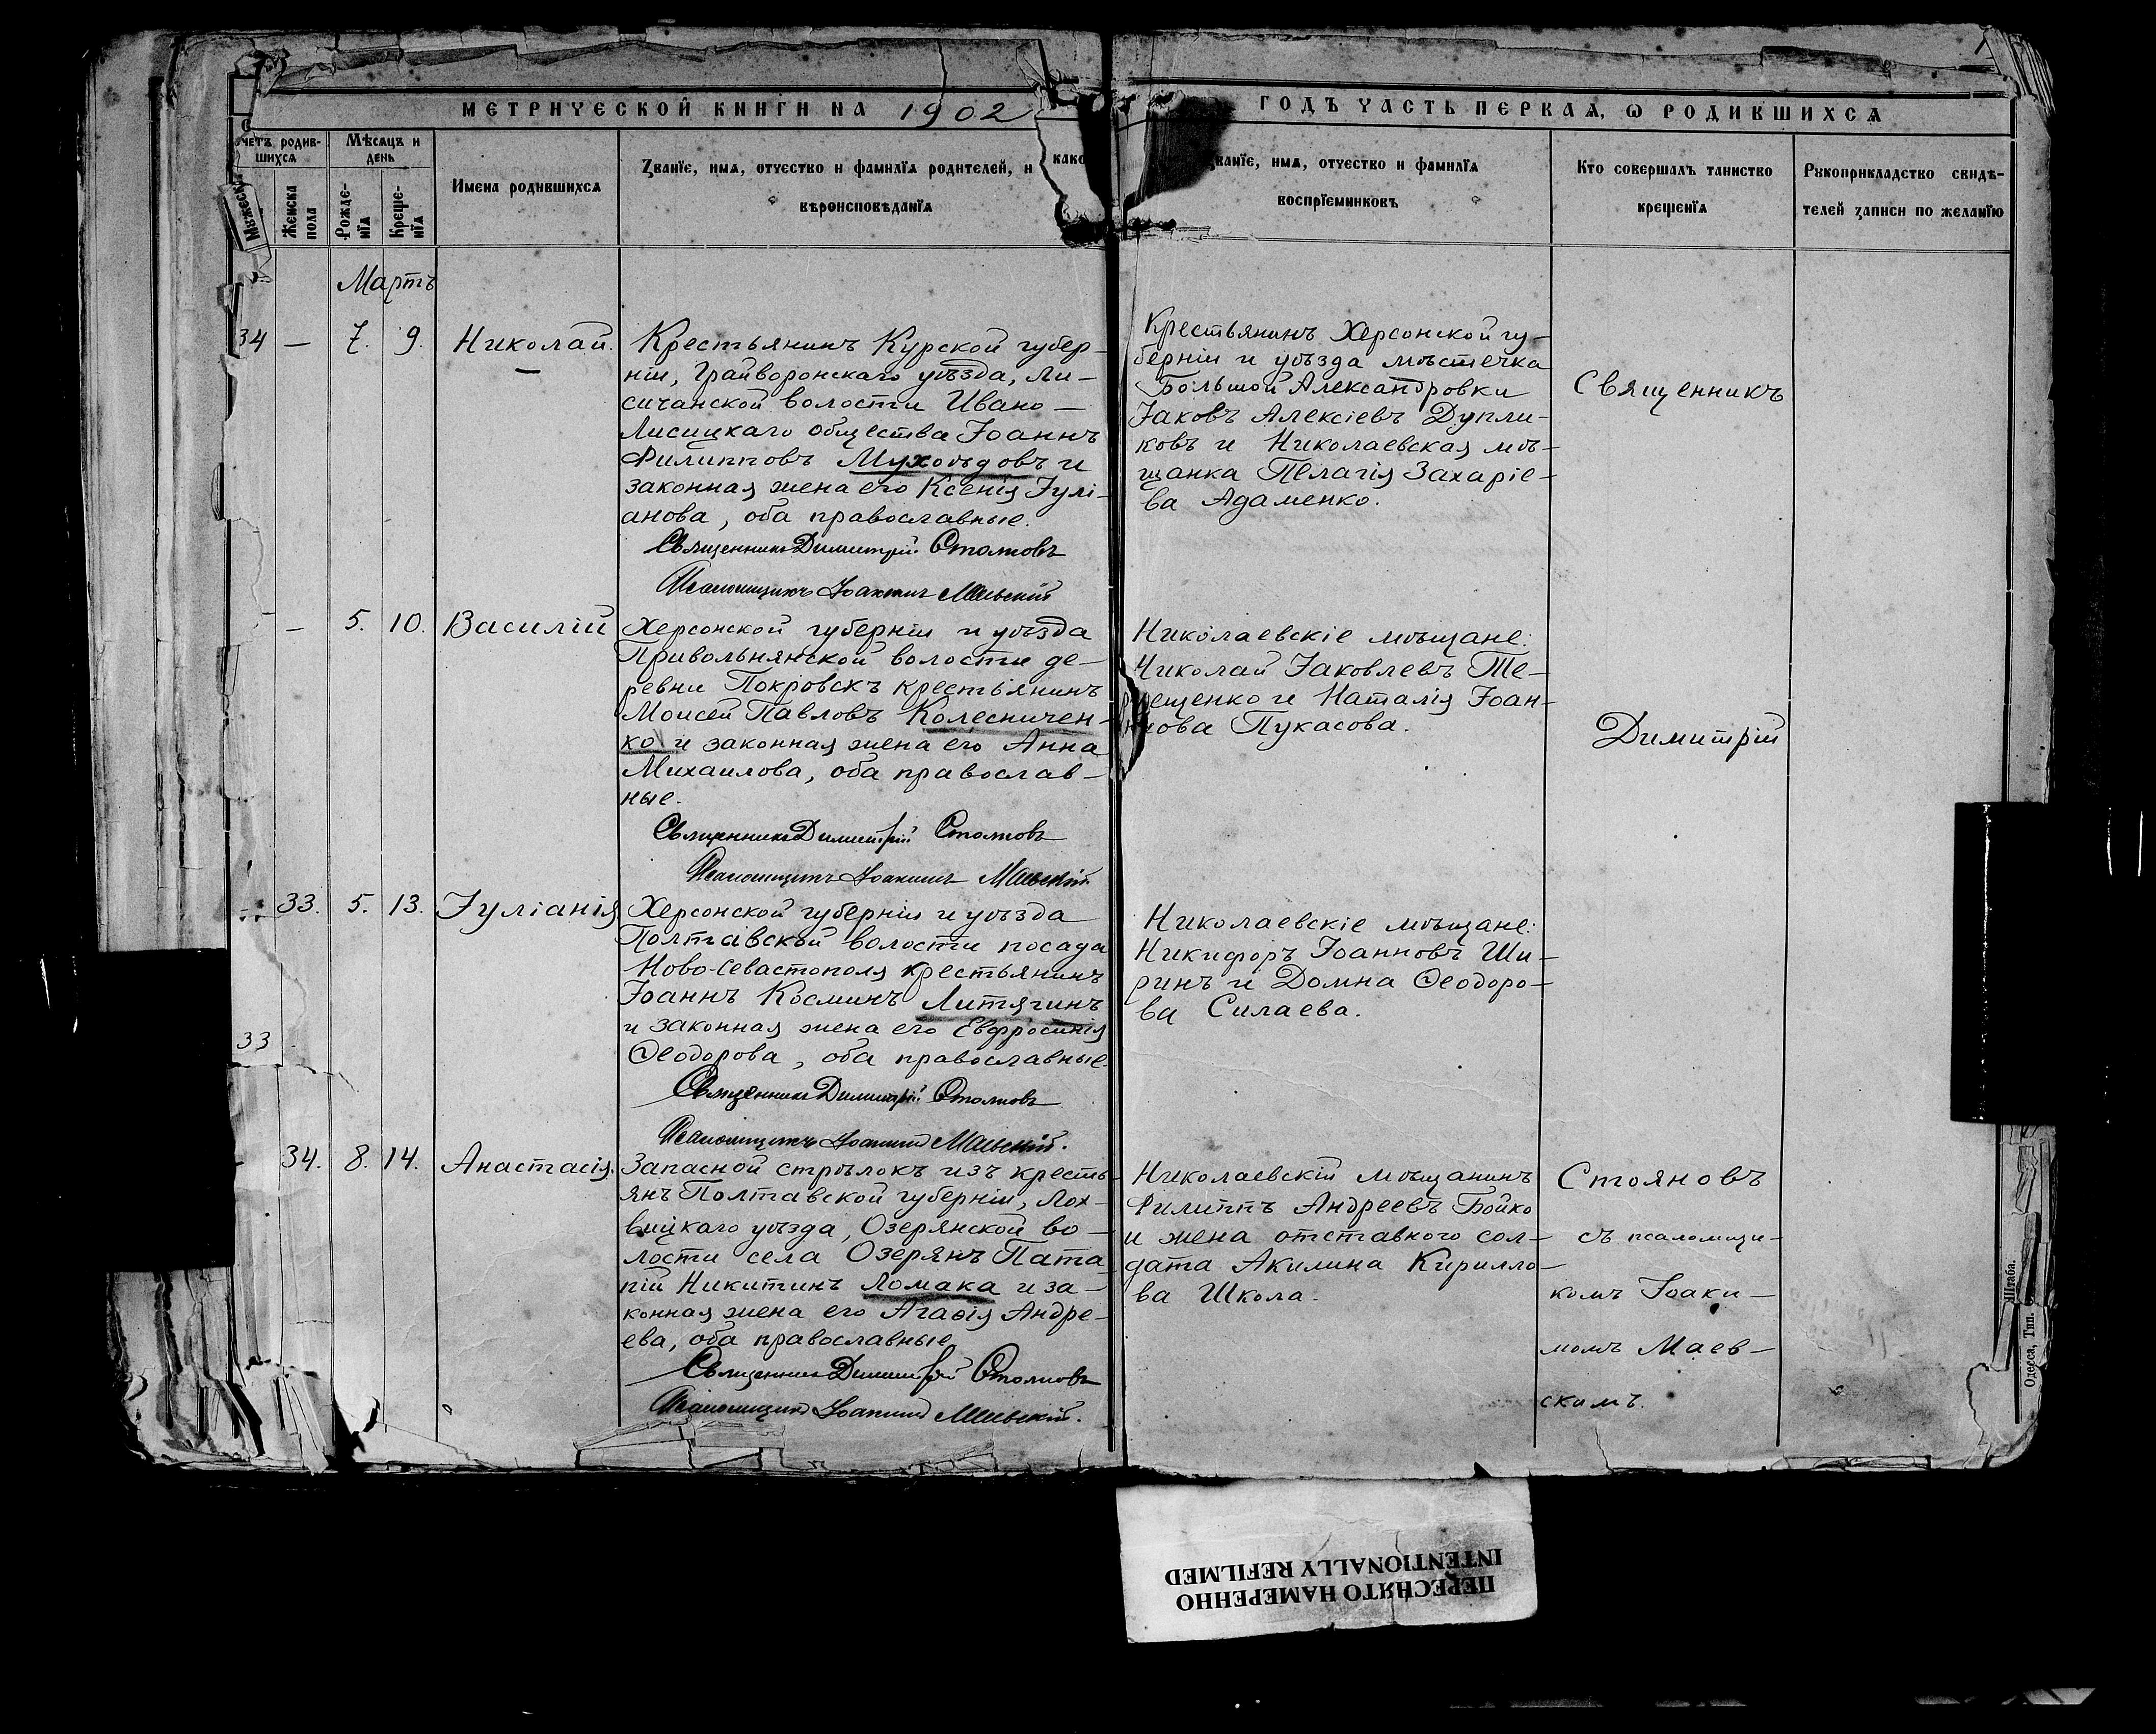 МЕТРИЧЕСКОЙ КНИГИ НА 1902
ГОДЪ ЧАСТЬ ПЕРВАЯ, Ѡ РОДИВШИХСЯ
четъ родив-
шихся
Мѣсяцъ и
день
Мужеск
Женска
пола
Рожде-
нїя
Креще-
нїя
Имена родившихся
Званїе, имя, отчество и фамилїя родителей, и
како
вѣроисповѣданїя
ванїе, имя, отчество и фамилїя
воспрїемниковъ
Кто совершалъ таинство
крещенїя
Рукоприкладство свидѣ-
телей записи по желанїю
Мартъ
34 — 7. 9. Николай.
Крестьянинъ Курской губер-
ніи, Грайворонскаго уѣзда, Ли-
сичанской волости Ивано-
Лисицкаго общества Іоаннъ
Филипповъ Мухоѣдовъ и
законная жена его Ксенія Іулі-
анова, оба православные.
Священникъ Димитрій Стояновъ
Псаломщикъ Іоакимъ Маевскій
Крестьянинъ Херсонской гу-
берніи и уѣзда мѣстечка
Большой Александровки
Іаковъ Алексіевъ Дупли-
ковъ и Николаевская мѣ-
щанка Пелагія Захаріе-
ва Адаменко.
Священникъ
— 5. 10. Василій
Херсонской губерніи и уѣзда
Привольнянской волости де-
ревни Покровскъ крестьянинъ
Моисей Павловъ Колесничен-
ко и законная жена его Анна
Михаилова, оба православ-
ные.
Священникъ Димитрій Стояновъ
Псаломщикъ Іоакимъ Маевскій
Николаевскіе мѣщане:
Николай Іаковлевъ Те-
рещенко и Наталія Іоан-
нова Пукасова.
Димитрій
33. 5. 13. Іуліанія
Херсонской губерніи и уѣзда
Полтавской волости посада
Ново-Севастополя крестьянинъ
Іоаннъ Косминъ Литягинъ
и законная жена его Евфросинія
Ѳеодорова, оба православные.
Священникъ Димитрій Стояновъ
Псаломщикъ Іоакимъ Маевскій.
Николаевскіе мѣщане:
Никифоръ Іоанновъ Ши-
ринъ и Домна Ѳеодоро-
ва Силаева.
33
34. 8. 14. Анастасія.
Запасной стрѣлокъ изъ кресть-
янъ Полтавской губерніи, Лох-
вицкаго уѣзда, Озерянской во-
лости села Озерянъ Пата-
пій Никитинъ Ломака и за-
конная жена его Агаѳія Андре-
ева, оба православные
Священникъ Димитрій Стояновъ
Псаломщикъ Іоакимъ Маевскій.
Николаевскій мѣщанинъ
Филиппъ Андреевъ Бойко
и жена отставного сол-
дата Акилина Кирилло-
ва Школа.
Стояновъ
съ псаломщи-
комъ Іоаки-
момъ Маев-
скимъ.
Одесса, Тип. Штаба.
ПЕРЕСНЯТО НАМЕРЕННО
INTENTIONALLY REFILMED